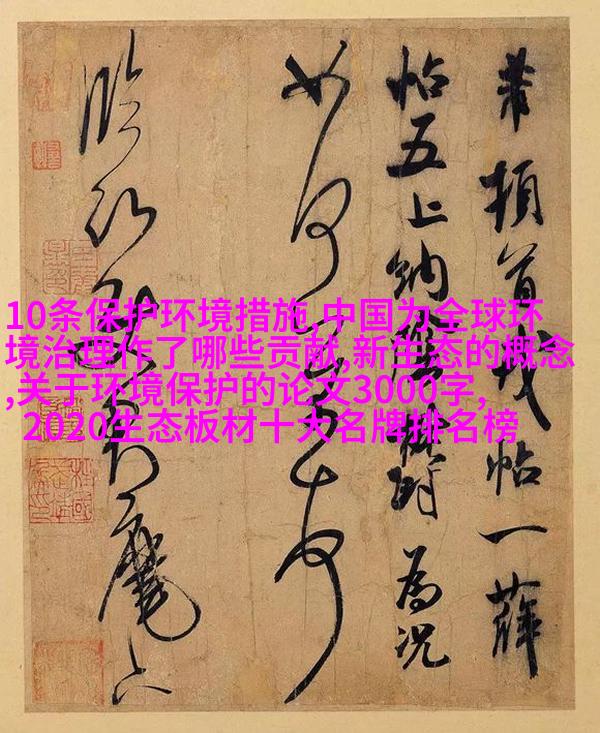 10条保护环境措施,中国为全球环
境治理作了哪些贡献,新生态的概念
,关于环境保护的论文3000字,
2020生态板材十大名牌排名榜
芾頓首戎帖一薛
帖五上納為況
如何芾頓首
臨沂使君麾下